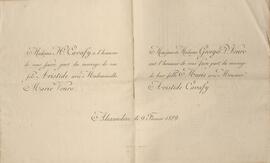 Madame H. Cavafy a l'honneur
de vous faire part du mariage de son
fils Aristide avec Mademoiselle
Marie Vouro
Monsieur et Madame George P. Vouro
ont l'honneur de vous faire part du mariage
de leur fille Marie avec Monsieur
Aristide Cavafy
Alexandrie, le 9 Février 1889